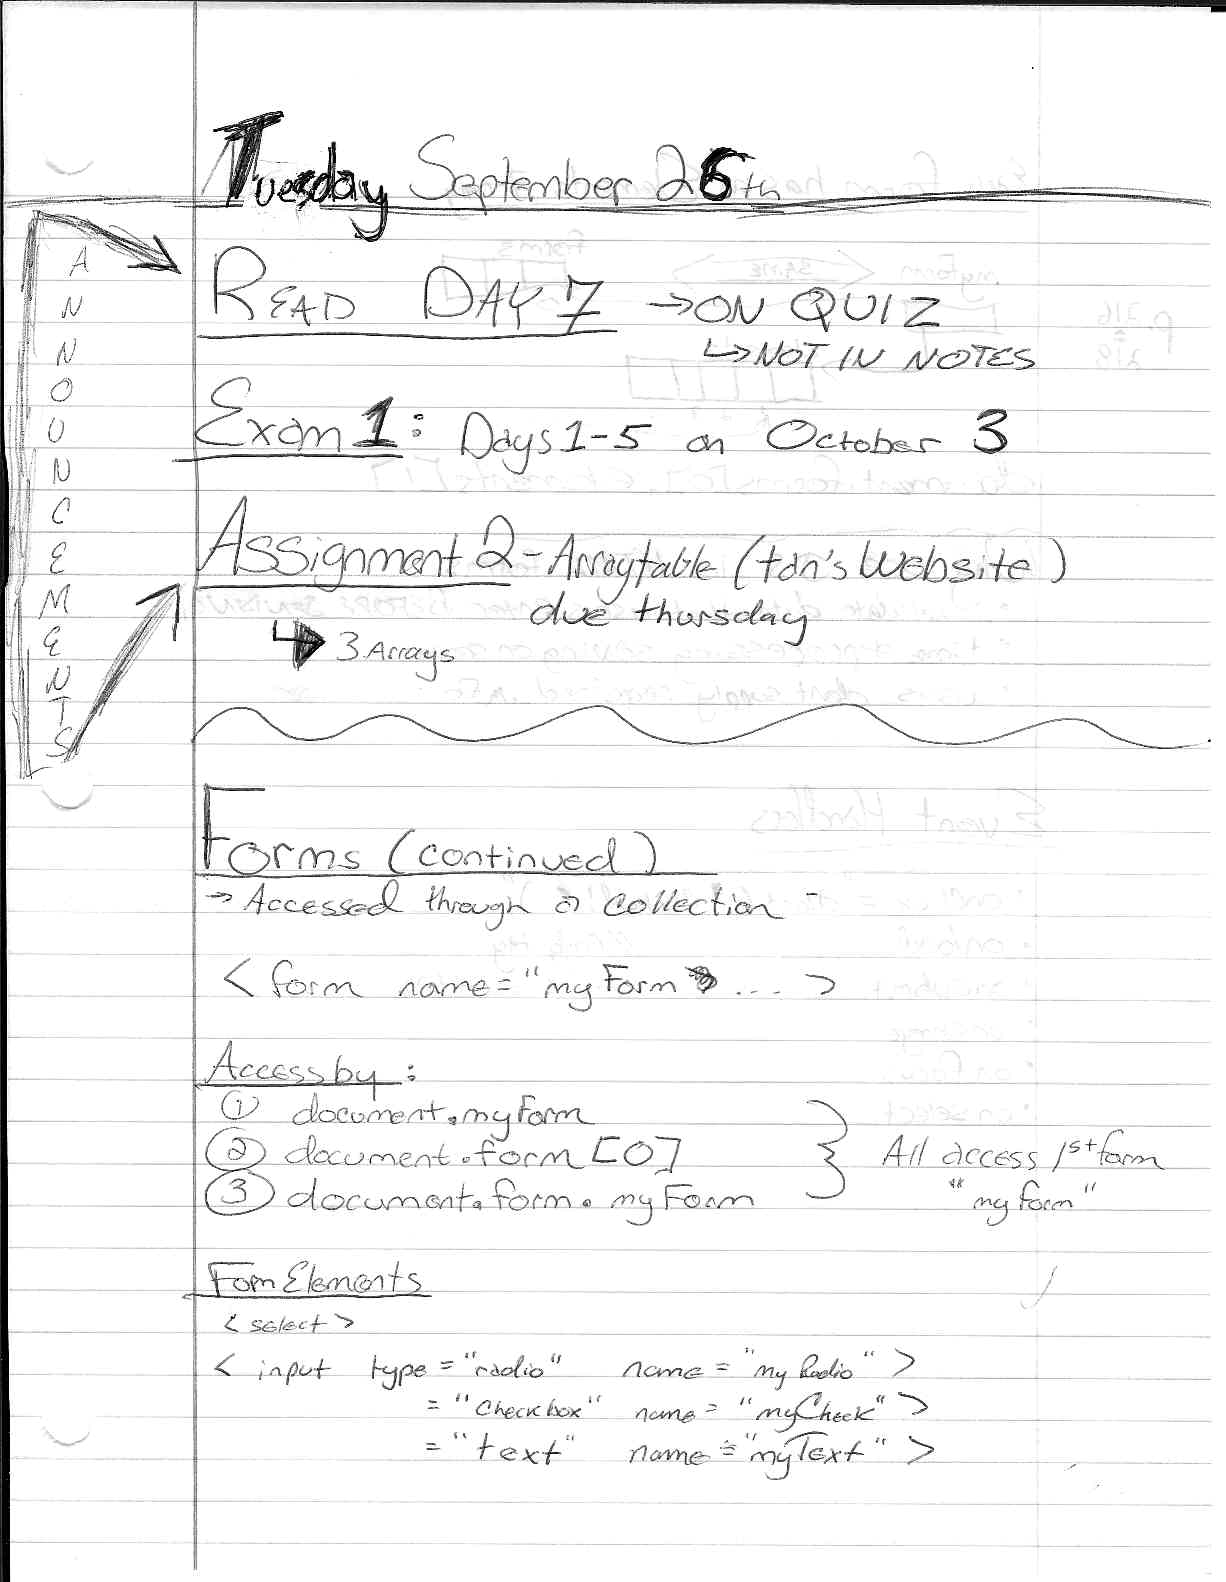 Tuesday September 26th
ANNOUNCEMENTS
READ DAY 7 →ON QUIZ
↳NOT IN NOTES
Exam 1: Days 1-5 on October 3
Assignment 2 - Arraytable (tdn's Website)
due thursday
↳ 3 Arrays
Forms (continued)
→ Accessed through a collection -
< form name = "myForm ... >
Access by:
① document.myForm
② document.form [0]
③ document.form.myForm
All access 1st form
"myform"
Form Elements
< select >
< input type = "radio" name = "myRadio" >
= "Checkbox" name = "myCheck" >
= "text" name = "myText" >